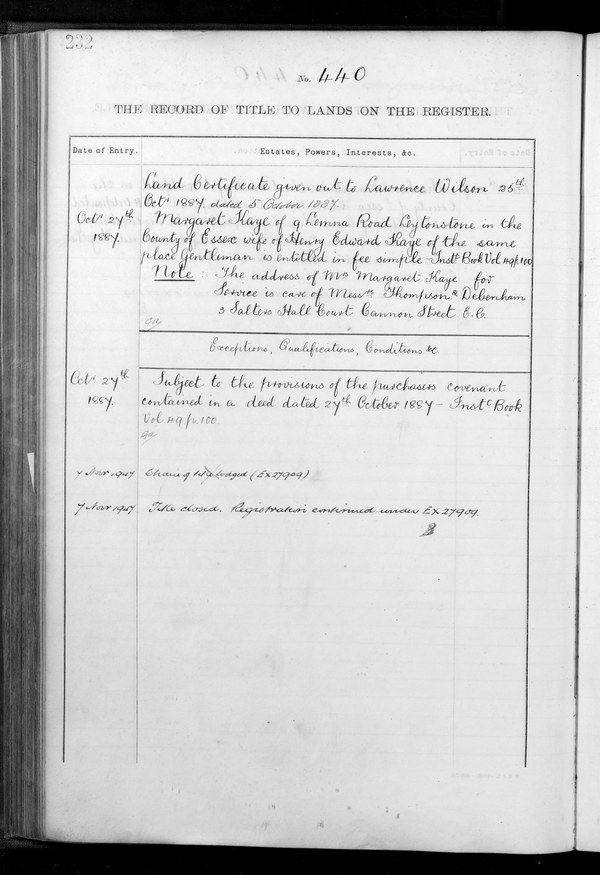 232
No. 440
THE RECORD OF TITLE TO LANDS ON THE REGISTER.
Date of Entry. Estates, Powers, Interests, &c.
Land Certificate given out to Lawrence Wilson 25th
Octr 1887. dated 5 October 1887.
Octr 27th Margaret Kaye of 9 Lemna Road Leytonstone in the
1887. County of Essex wife of Henry Edward Kaye of the same
place Gentleman is entitled in fee simple - Instt Book Vol 49 p. 100
Note : The address of Mrs Margaret Kaye for
Service is care of Messrs Thompson & Debenham
3 Salters Hall Court Cannon Street E.C.
Exceptions, Qualifications, Conditions &c.
Octr 27th Subject to the provisions of the purchasers covenant
1887. contained in a deed dated 27th October 1887 - Instt Book
Vol 49 p. 100.
7 Novr 1947 Chain of title lodged (EX27909)
7 Novr 1947 Title closed. Registration continued under EX27909.